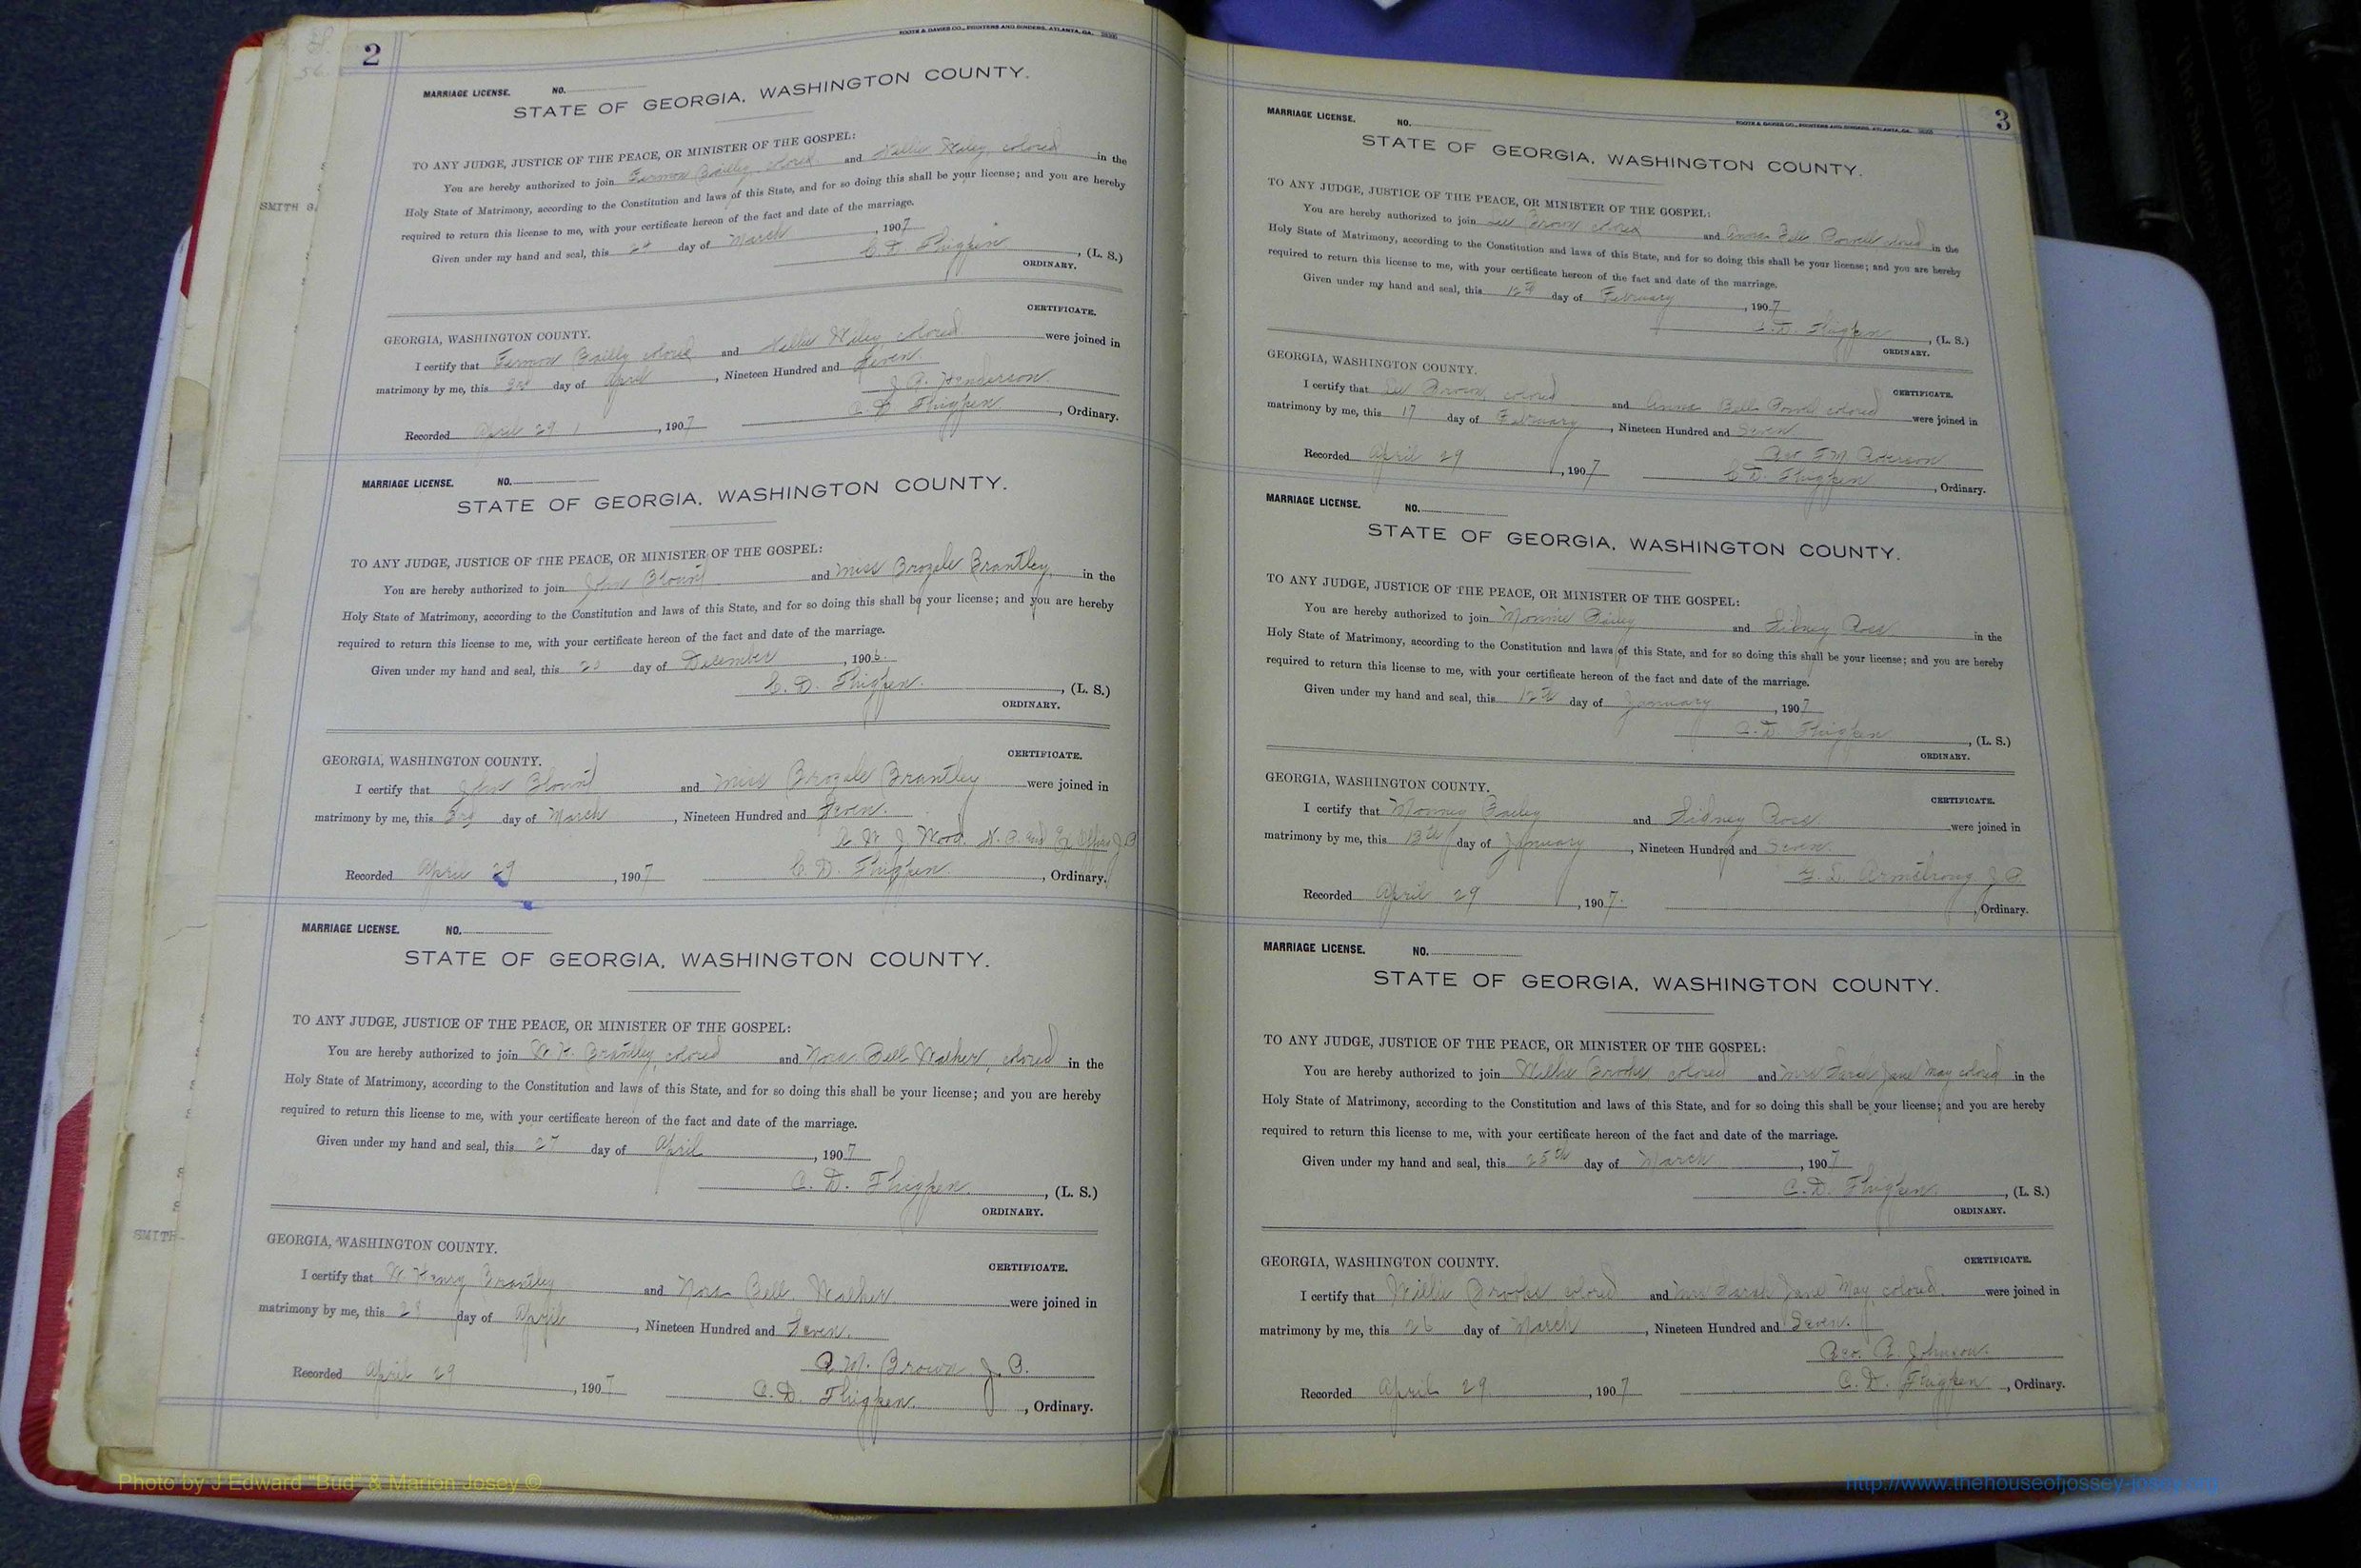 2
FOOTE & DAVIES CO., PRINTERS AND BINDERS, ATLANTA, GA.
MARRIAGE LICENSE. NO.
STATE OF GEORGIA, WASHINGTON COUNTY.
TO ANY JUDGE, JUSTICE OF THE PEACE, OR MINISTER OF THE GOSPEL:
You are hereby authorized to join Bailey colored and Nellie Wiley, colored in the
Holy State of Matrimony, according to the Constitution and laws of this State, and for so doing this shall be your license; and you are hereby
required to return this license to me, with your certificate hereon of the fact and date of the marriage.
Given under my hand and seal, this day of March, 1907
C. D. Thigpen, (L. S.)
ORDINARY.
CERTIFICATE.
GEORGIA, WASHINGTON COUNTY.
I certify that colored and Nellie Wiley, colored were joined in
matrimony by me, this 3rd day of April, Nineteen Hundred and Seven.
Henderson.
Recorded April 29, 1907 C. D. Thigpen, Ordinary.
MARRIAGE LICENSE. NO.
STATE OF GEORGIA, WASHINGTON COUNTY.
TO ANY JUDGE, JUSTICE OF THE PEACE, OR MINISTER OF THE GOSPEL:
You are hereby authorized to join John Blount and Miss Brozele Brantley, in the
Holy State of Matrimony, according to the Constitution and laws of this State, and for so doing this shall be your license; and you are hereby
required to return this license to me, with your certificate hereon of the fact and date of the marriage.
Given under my hand and seal, this day of December, 1906.
C. D. Thigpen., (L. S.)
ORDINARY.
CERTIFICATE.
GEORGIA, WASHINGTON COUNTY.
I certify that John Blount and Miss Brozele Brantley were joined in
matrimony by me, this 3rd day of March, Nineteen Hundred and Seven.
J. Wood. N. P. and Ex Officio J.P.
Recorded April 29, 1907 C. D. Thigpen., Ordinary.
MARRIAGE LICENSE. NO.
STATE OF GEORGIA, WASHINGTON COUNTY.
TO ANY JUDGE, JUSTICE OF THE PEACE, OR MINISTER OF THE GOSPEL:
You are hereby authorized to join W. H. Brantley, colored and Nora Bell Walker, colored in the
Holy State of Matrimony, according to the Constitution and laws of this State, and for so doing this shall be your license; and you are hereby
required to return this license to me, with your certificate hereon of the fact and date of the marriage.
Given under my hand and seal, this 27 day of April, 1907
C. D. Thigpen., (L. S.)
ORDINARY.
GEORGIA, WASHINGTON COUNTY.
CERTIFICATE.
I certify that W. Henry Brantley and Nora Bell Walker were joined in
matrimony by me, this 28 day of April, Nineteen Hundred and Seven.
M. Brown J. P.
Recorded April 29, 1907 C. D. Thigpen., Ordinary.
3
FOOTE & DAVIES CO., PRINTERS AND BINDERS, ATLANTA, GA.
MARRIAGE LICENSE. NO.
STATE OF GEORGIA, WASHINGTON COUNTY.
TO ANY JUDGE, JUSTICE OF THE PEACE, OR MINISTER OF THE GOSPEL:
You are hereby authorized to join Brown colored and Anna Bell colored in the
Holy State of Matrimony, according to the Constitution and laws of this State, and for so doing this shall be your license; and you are hereby
required to return this license to me, with your certificate hereon of the fact and date of the marriage.
Given under my hand and seal, this 12th day of February, 1907
C. D. Thigpen, (L. S.)
ORDINARY.
GEORGIA, WASHINGTON COUNTY.
CERTIFICATE.
I certify that Brown, colored and Anna Bell colored were joined in
matrimony by me, this 17 day of February, Nineteen Hundred and Seven
Rev.
Recorded April 29, 1907 C. D. Thigpen, Ordinary.
MARRIAGE LICENSE. NO.
STATE OF GEORGIA, WASHINGTON COUNTY.
TO ANY JUDGE, JUSTICE OF THE PEACE, OR MINISTER OF THE GOSPEL:
You are hereby authorized to join Bailey and Sidney Rose in the
Holy State of Matrimony, according to the Constitution and laws of this State, and for so doing this shall be your license; and you are hereby
required to return this license to me, with your certificate hereon of the fact and date of the marriage.
Given under my hand and seal, this 12th day of January, 1907
C. D. Thigpen, (L. S.)
ORDINARY.
GEORGIA, WASHINGTON COUNTY.
CERTIFICATE.
I certify that Bailey and Sidney Rose were joined in
matrimony by me, this 13th day of January, Nineteen Hundred and Seven
Armstrong J.P.
Recorded April 29, 1907., Ordinary.
MARRIAGE LICENSE. NO.
STATE OF GEORGIA, WASHINGTON COUNTY.
TO ANY JUDGE, JUSTICE OF THE PEACE, OR MINISTER OF THE GOSPEL:
You are hereby authorized to join Willie Brooks colored and Mrs Sarah Jane May colored in the
Holy State of Matrimony, according to the Constitution and laws of this State, and for so doing this shall be your license; and you are hereby
required to return this license to me, with your certificate hereon of the fact and date of the marriage.
Given under my hand and seal, this 25th day of March, 1907
C. D. Thigpen., (L. S.)
ORDINARY.
GEORGIA, WASHINGTON COUNTY.
CERTIFICATE.
I certify that Willie Brooks colored and Mrs Sarah Jane May, colored. were joined in
matrimony by me, this 26 day of March, Nineteen Hundred and Seven.
Rev. Johnson.
Recorded April 29, 1907 C. D. Thigpen, Ordinary.
SMITH
SMITH
Photo by J Edward "Bud" & Marion Josey ©
http://www.thehouseofjossey-josey.org